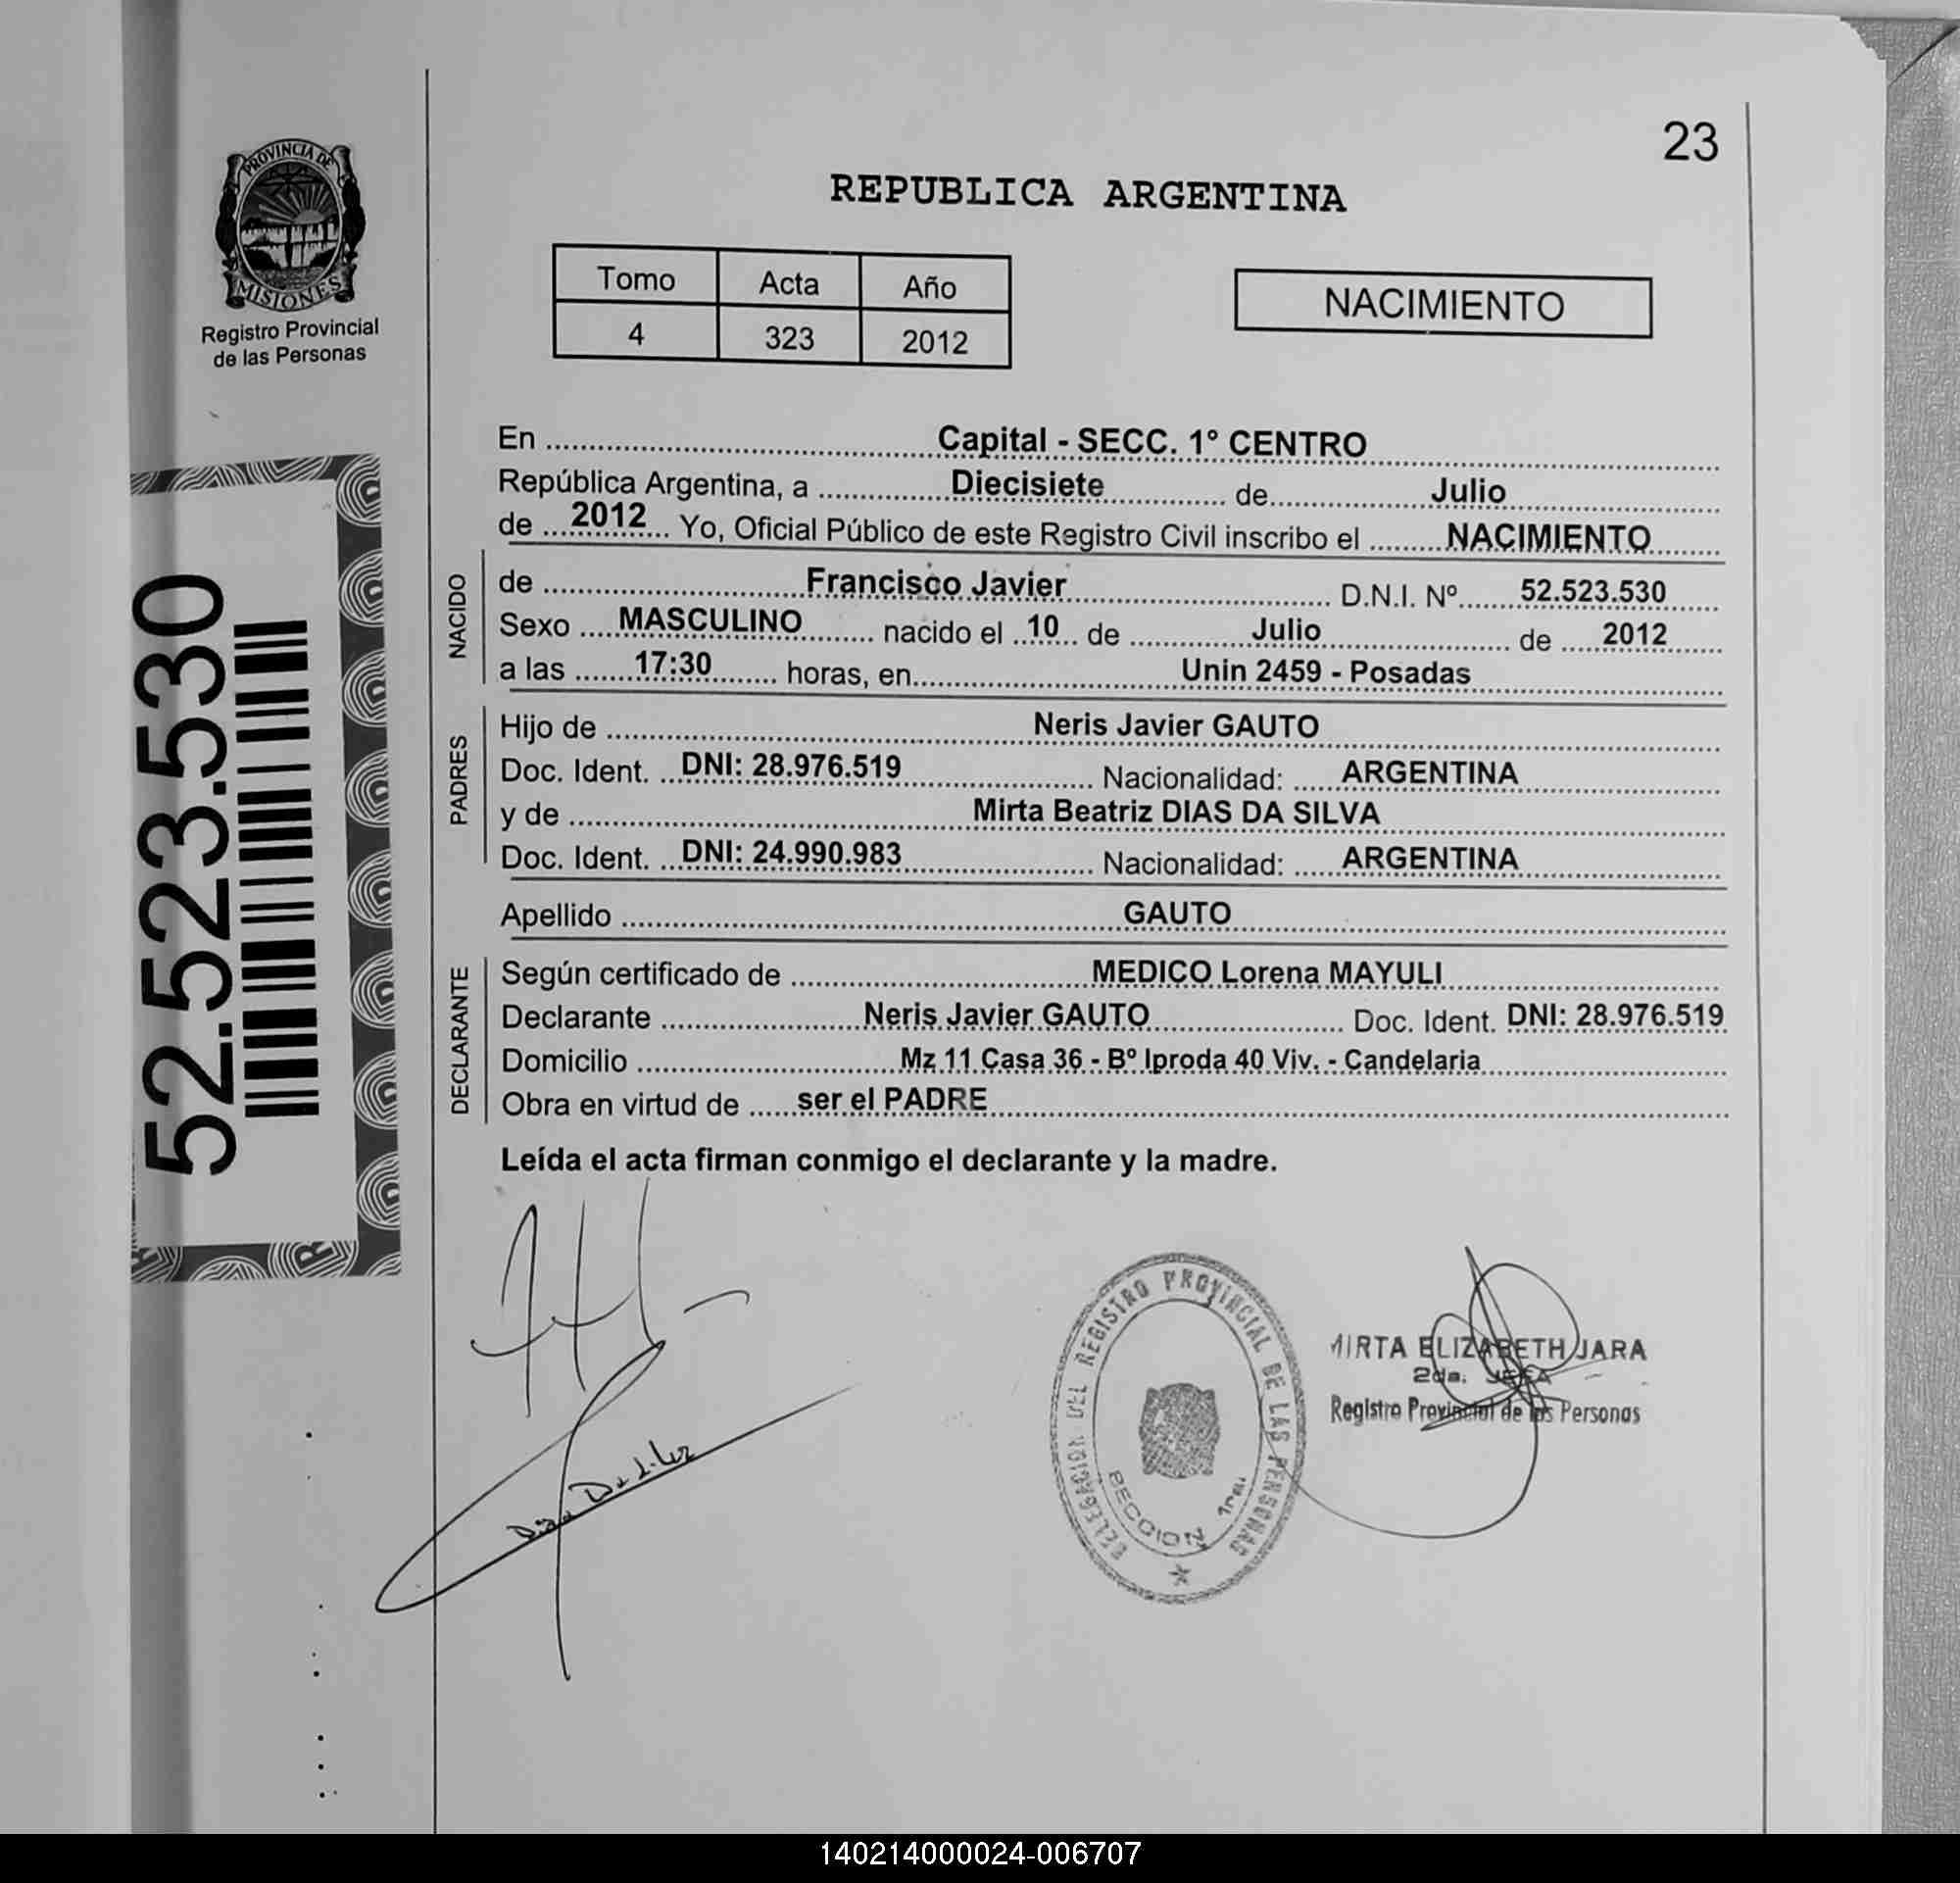 23
PROVINCIA DE
MISIONES
Registro Provincial
de las Personas
REPUBLICA ARGENTINA
Tomo Acta Año
4 323 2012
NACIMIENTO
52.523.530
En Capital - SECC. 1º CENTRO
República Argentina, a Diecisiete de Julio
de 2012 Yo, Oficial Público de este Registro Civil inscribo el NACIMIENTO
NACIDO
de Francisco Javier D.N.I. Nº 52.523.530
Sexo MASCULINO nacido el 10 de Julio de 2012
a las 17:30 horas, en Unin 2459 - Posadas
PADRES
Hijo de Neris Javier GAUTO
Doc. Ident. DNI: 28.976.519 Nacionalidad: ARGENTINA
y de Mirta Beatriz DIAS DA SILVA
Doc. Ident. DNI: 24.990.983 Nacionalidad: ARGENTINA
Apellido GAUTO
DECLARANTE
Según certificado de MEDICO Lorena MAYULI
Declarante Neris Javier GAUTO Doc. Ident. DNI: 28.976.519
Domicilio Mz 11 Casa 36 - Bº Iproda 40 Viv. - Candelaria
Obra en virtud de ser el PADRE
Leída el acta firman conmigo el declarante y la madre.
DELEGACION DEL REGISTRO PROVINCIAL DE LAS PERSONAS
SECCION 1ra.
MIRTA ELIZABETH JARA
2da. JEFA
Registro Provincial de las Personas
140214000024-006707